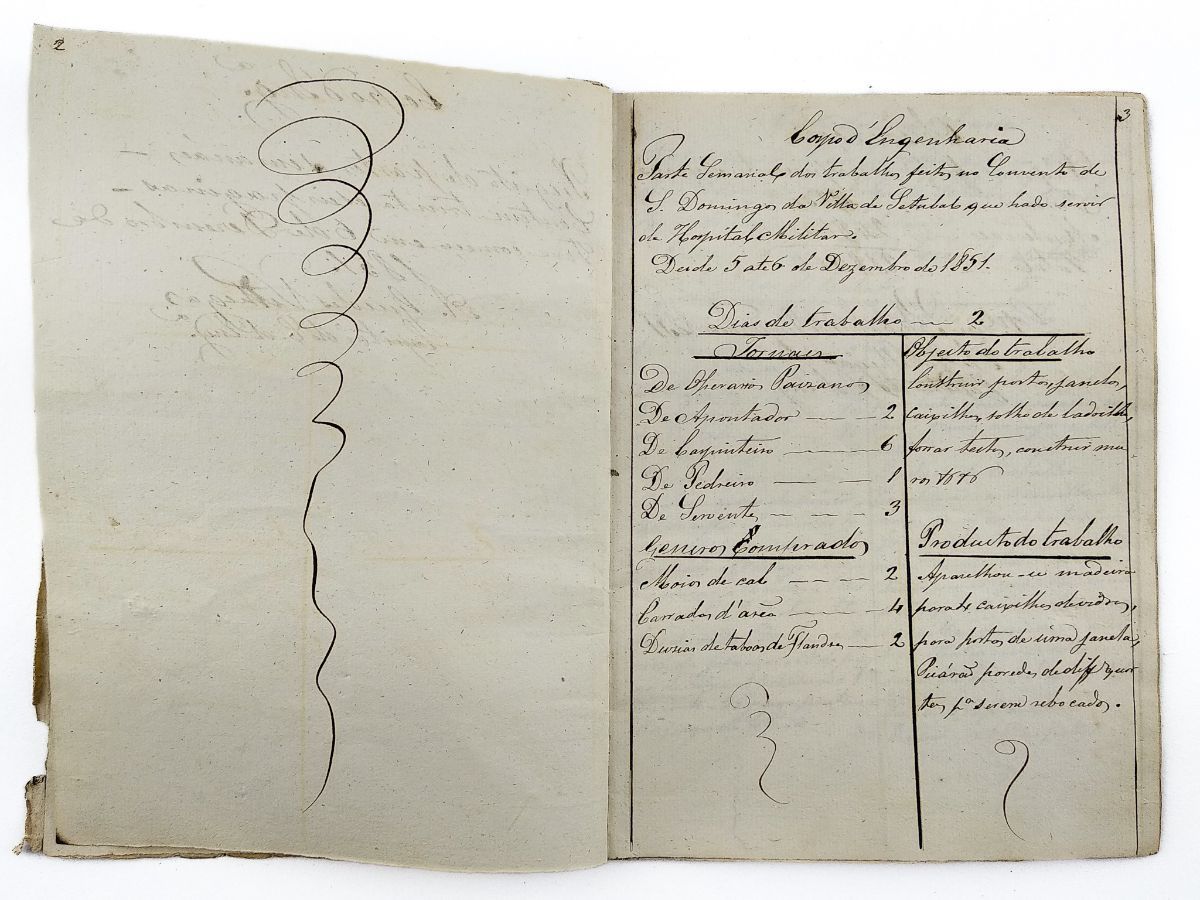 2
3
Corpo d'Engenharia
Parte Semanal dos trabalhos feitos no Convento de
S. Domingos da Villa de Setubal que hade servir
de Hospital Militar.
Desde 5 até 6 de Dezembro de 1851.
Dias de trabalho — 2
Jornaes
De Operarios Paizanos
De Apontador — — 2
De Carpinteiro — — 6
De Pedreiro — — 1
De Servente — — 3
Generos Comprados
Moios de cal — — 2
Carradas d'arêa — — 4
Duzias de taboas de Flandres — 2
Objecto do trabalho
Construir portas, janelas,
caixilhos, solho de ladrilho,
forrar tectos, construir mu
ros &c &c
Producto do trabalho
Aparelhou-se madeira
para caixilhos de vidros,
para portas de uma janela,
Picárão paredes de diff.es quar
tos pa serem rebocados.